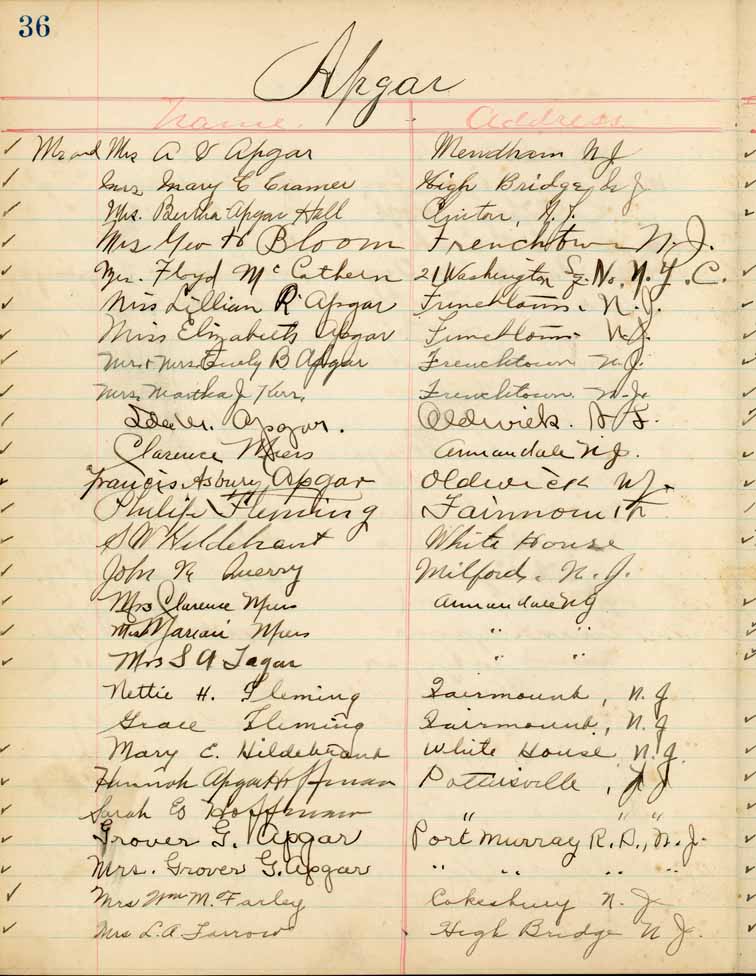 36
Apgar
Name. Address
Mr and Mrs A V Apgar Mendham NJ
Mrs Mary E Cramer High Bridge N J
Mrs. Bertha Apgar Hall Clinton, N.J.
Mrs Geo H Bloom Frenchtown N.J.
Mrs. Floyd Mc Cathern 21 Washington Sq. No. N.Y.C.
Miss Lillian R Apgar Frenchtown. N.J.
Miss Elizabeth Apgar Frenchtown N.J.
Mr + Mrs. Emely B Apgar Frenchtown N.J.
Mrs. Martha J Kerr. Frenchtown. N.J.
Ida M. Apgar. Oldwick. N J.
Clarence Myers Annandale N.J.
Francis Asbury Apgar Oldwick NJ.
Philip Fleming Fairmount
S W Hildebrant White House
John R Querry Milford. N.J.
Mrs Clarence Myers Annandale NJ
Miss Marian Myers " "
Mrs S A " "
Nettie H. Fleming Fairmount, N.J
Grace Fleming Fairmount, N.J
Mary E. Hildebrant White House N.J.
Hannah Apgar Hoffman Pottersville, N J
Sarah E Hoffman " "
Grover G. Apgar Port Murray R.D., N.J.
Mrs. Grover G. Apgar " " " "
Mrs Wm M. Farley Cokesbury N.J.
Mrs L.A. Farrow High Bridge N J.